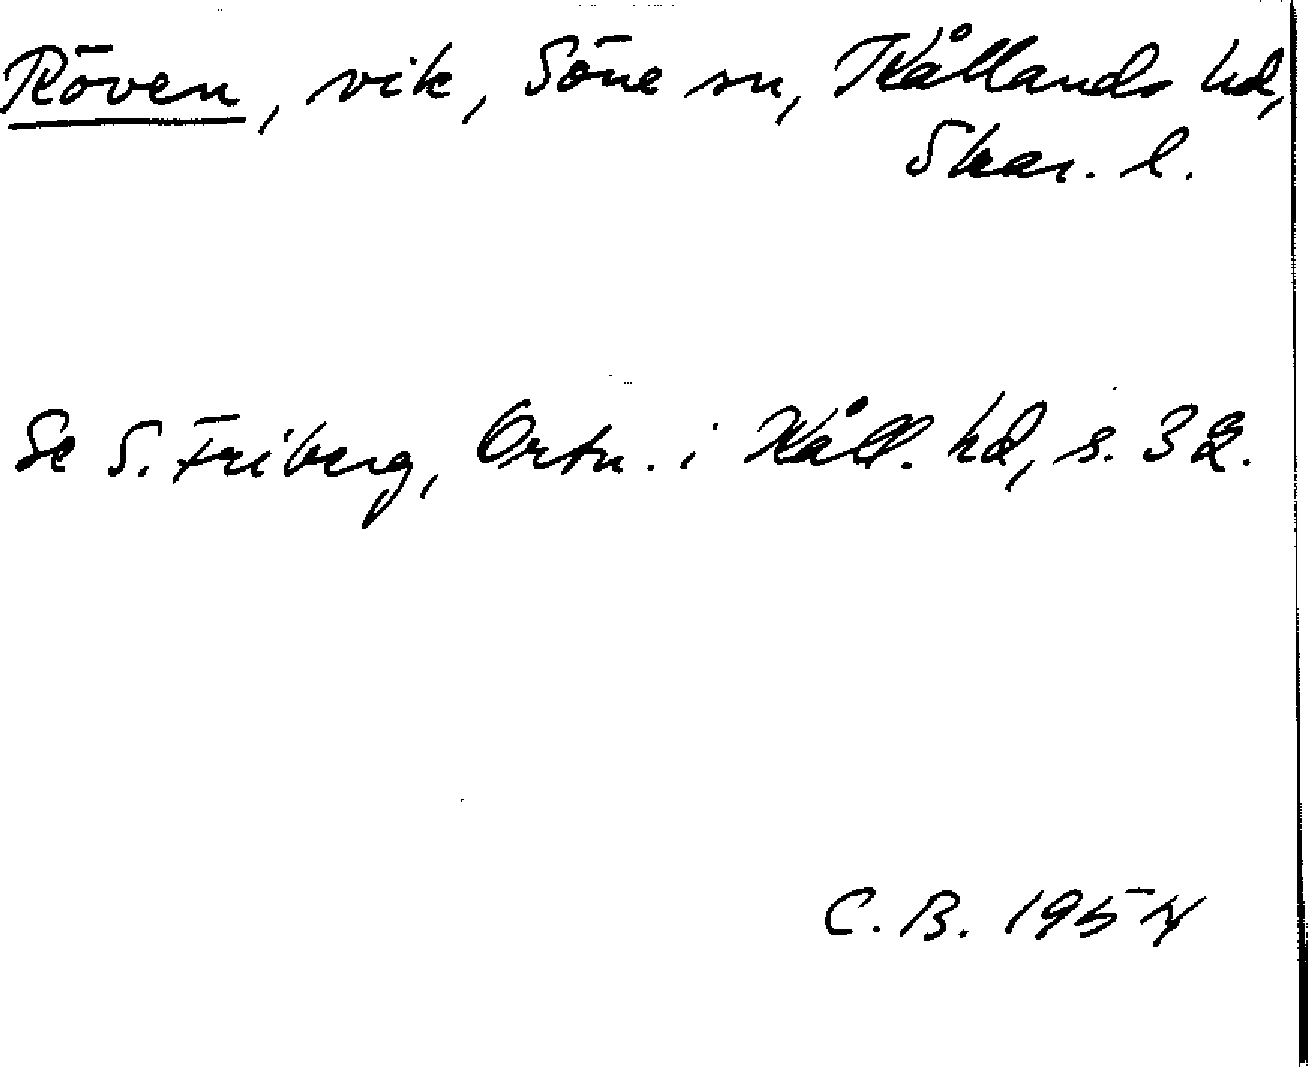 Röven, vik, Söne sn, Kållands hd,
Skar. l.
Se S. Friberg, Ortn. i Kåll. hd, s. 32.
C. B. 1954